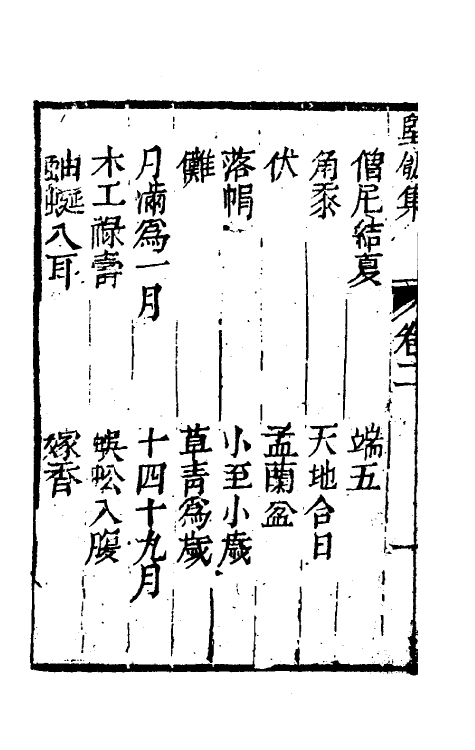 集
卷二
一
僧尼結夏 端五
角黍 天地合日
伏 盂蘭盆
落帽 小至小歲
儺 草青為歲
月滿為一月 十四十九月
木工祿壽 蜈蚣入腹
蚰蜒入耳 嫁杏